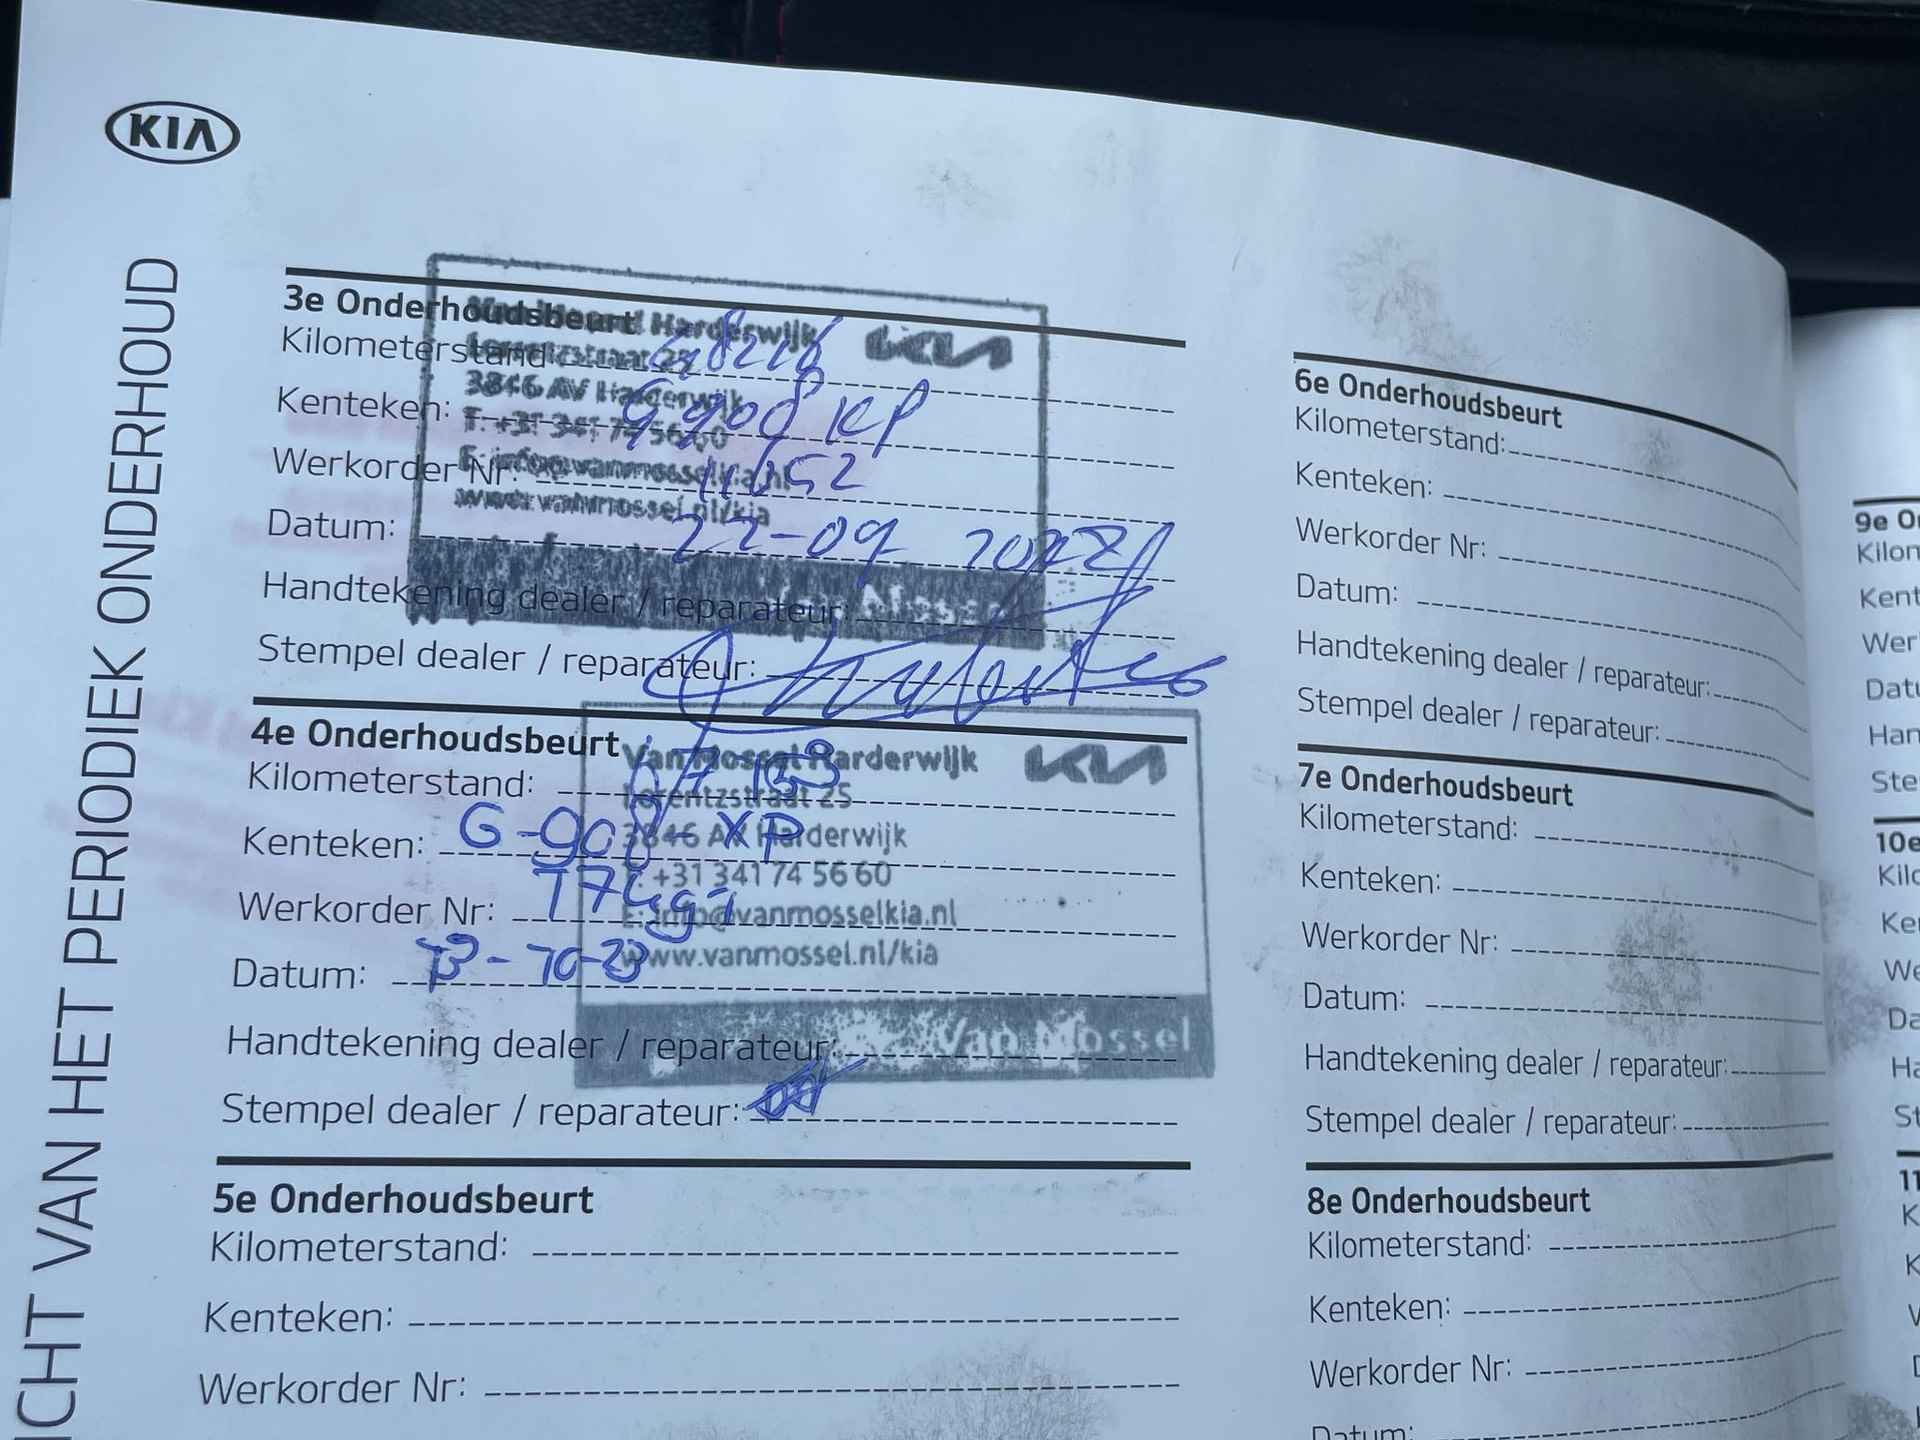 KIA
ICHT VAN HET PERIODIEK ONDERHOUD
3e Onderhoudsbeurt
Kilometerstand: 48216
Kenteken: G908KP
Werkorder Nr: 11652
Datum: 22-09 2022
Handtekening dealer / reparateur:
Stempel dealer / reparateur:
Harderwijk
3846 AV Harderwijk
T: +31 341 74 56 60
E: info@vanmosselkia.nl
www.vanmossel.nl/kia
Van Mossel
KIA
4e Onderhoudsbeurt
Kilometerstand:
Kenteken: G-908-XP
Werkorder Nr:
Datum: 13-10-23
Handtekening dealer / reparateur:
Stempel dealer / reparateur:
Van Mossel Harderwijk
Lorentzstraat 25
3846 AV Harderwijk
T: +31 341 74 56 60
E: info@vanmosselkia.nl
www.vanmossel.nl/kia
Van Mossel
KIA
5e Onderhoudsbeurt
Kilometerstand:
Kenteken:
Werkorder Nr:
6e Onderhoudsbeurt
Kilometerstand:
Kenteken:
Werkorder Nr:
Datum:
Handtekening dealer / reparateur:
Stempel dealer / reparateur:
7e Onderhoudsbeurt
Kilometerstand:
Kenteken:
Werkorder Nr:
Datum:
Handtekening dealer / reparateur:
Stempel dealer / reparateur:
8e Onderhoudsbeurt
Kilometerstand:
Kenteken:
Werkorder Nr:
Datum:
9e O
Kilon
Kent
Wer
Datu
Han
Ste
10e
Kilo
Ke
We
Da
Ha
St
11
K
K